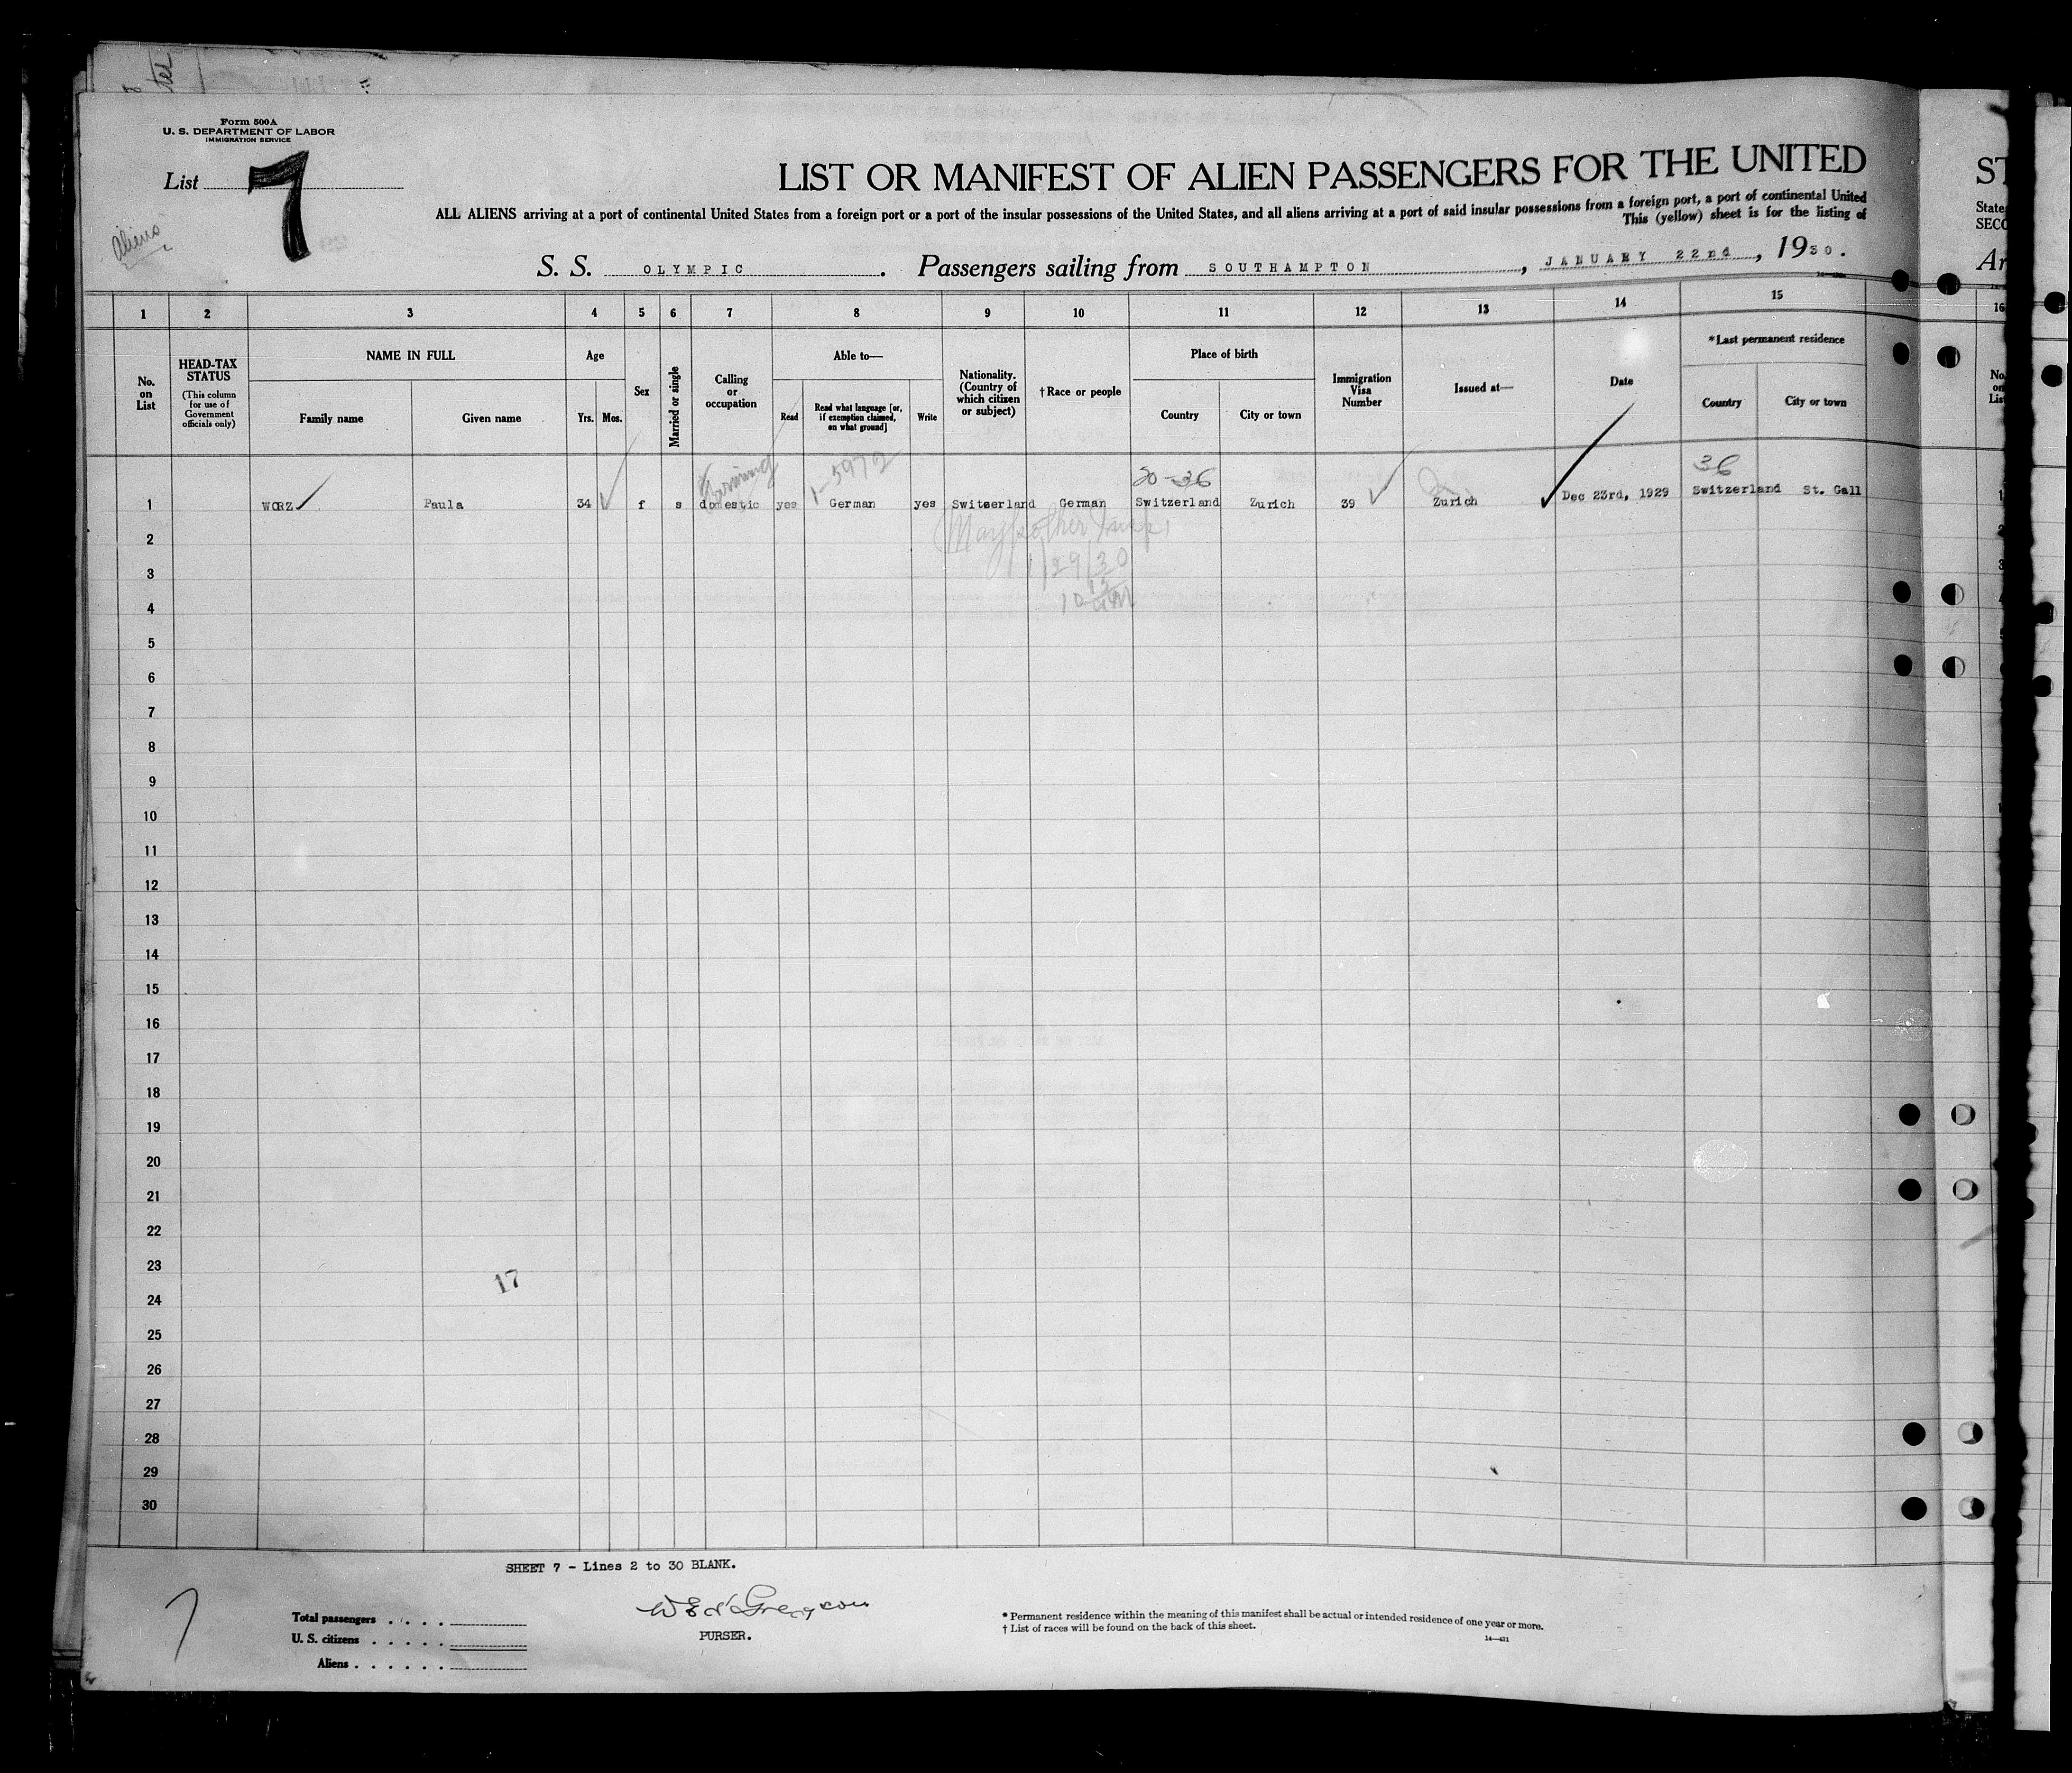 Form 500A
U. S. DEPARTMENT OF LABOR
IMMIGRATION SERVICE
List 7
Aliens
LIST OR MANIFEST OF ALIEN PASSENGERS FOR THE UNITED
ALL ALIENS arriving at a port of continental United States from a foreign port or a port of the insular possessions of the United States, and all aliens arriving at a port of said insular possessions from a foreign port, a port of continental United
This (yellow) sheet is for the listing of
S. S. OLYMPIC. Passengers sailing from SOUTHAMPTON, JANUARY 22nd, 1930.
ST
State
SECO
Ar
1 2 3 4 5 6 7 8 9 10 11 12 13 14 15 16
No. on List
HEAD-TAX STATUS
(This column for use of Government officials only)
NAME IN FULL
Family name
Given name
Age
Yrs. Mos.
Sex
Married or single
Calling or occupation
Able to—
Read
Read what language [or, if exemption claimed, on what ground]
Write
Nationality. (Country of which citizen or subject)
†Race or people
Place of birth
Country
City or town
Immigration Visa Number
Issued at—
Date
*Last permanent residence
Country
City or town
No. on List
1-5972
20-36
36
1 WORZ Paula 34 f s domestic yes German yes Switzerland German Switzerland Zurich 39 Zurich Dec 23rd, 1929 Switzerland St. Gall
2
1/29/30
3
4
5
6
7
8
9
10
11
12
13
14
15
16
17
18
19
20
21
22
23
17
24
25
26
27
28
29
30
SHEET 7 - Lines 2 to 30 BLANK.
7
Total passengers . . . .
U. S. citizens . . . . .
Aliens . . . . . .
PURSER.
* Permanent residence within the meaning of this manifest shall be actual or intended residence of one year or more.
† List of races will be found on the back of this sheet.